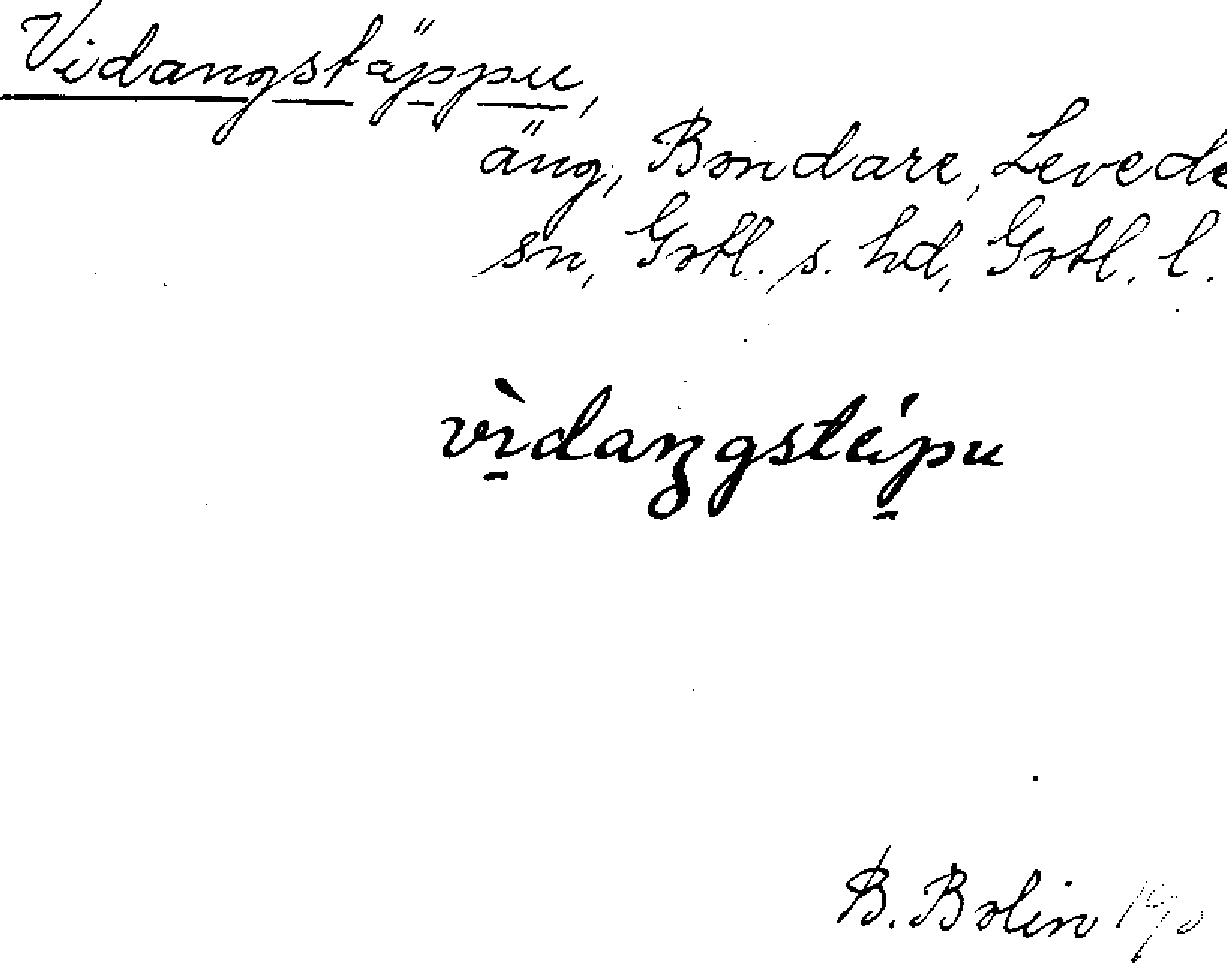 Vidangstäppu,
äng, Bondare, Levede
sn, Gotl. s. hd, Gotl. l.
vìdaŋgstápu
B. Bolin